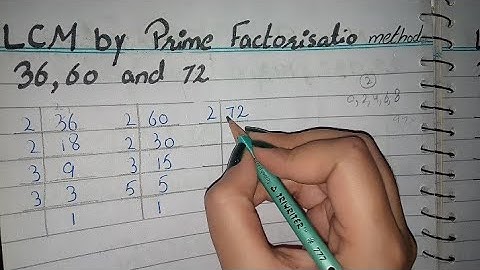 LCM by Prime Factorisatio method
36, 60 and 72
2
0, 2, 4, 6, 8
2 36 2 60 2 72
2 18 2 30
3 9 3 15
3 3 5 5
1 1
TRIWRITER # 777